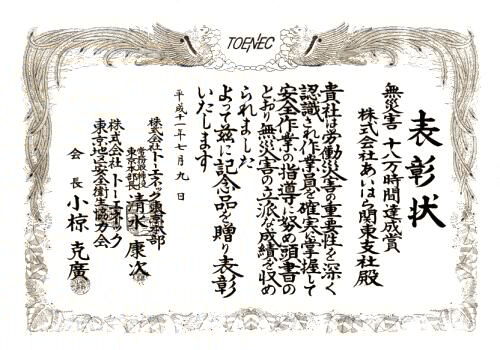 TOENEC
表彰状
無災害 十八万時間達成賞
株式会社あいはら関東支社殿
貴社は労働災害の重要性を深く
認識され作業員を確実に掌握して
安全作業の指導に努め頭書の
とおり無災害の立派な成績を収め
られました
よって茲に記念品を贈り表彰
いたします
平成十一年七月九日
株式会社トーエネック東京本部
常務取締役
東京本部長 清水康次
株式会社トーエネック
東京地区安全衛生協力会
会長 小椋克廣